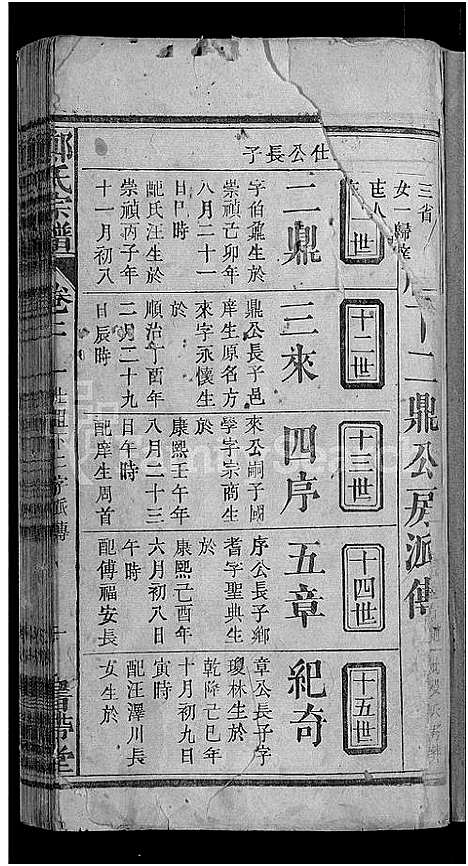 三省
女一歸辛
世人
十二鼎公房派傳
仕公長子
一世
二鼎
字伯鼐生於
崇禎己卯年
八月二十一
日巳時
配氏汪生於
崇禎丙子年
十一月初八
十二世
三來
鼎公長子邑
庠生原名方
來字永懷生
於
順治丁酉年
二月二十九
日辰時
十三世
四序
來公嗣子國
學字宗商生
於
康熙壬午年
八月二十三
日午時
配庠生周首
十四世
五章
序公長子鄉
耆字聖典生
於
康熙己酉年
六月初八日
午時
配傅福安長
十五世
紀奇
章公長子字
瓊林生於
乾隆己巳年
十月初九日
寅時
配汪澤川長
女生於
鄭氏宗譜
卷二
書帶堂